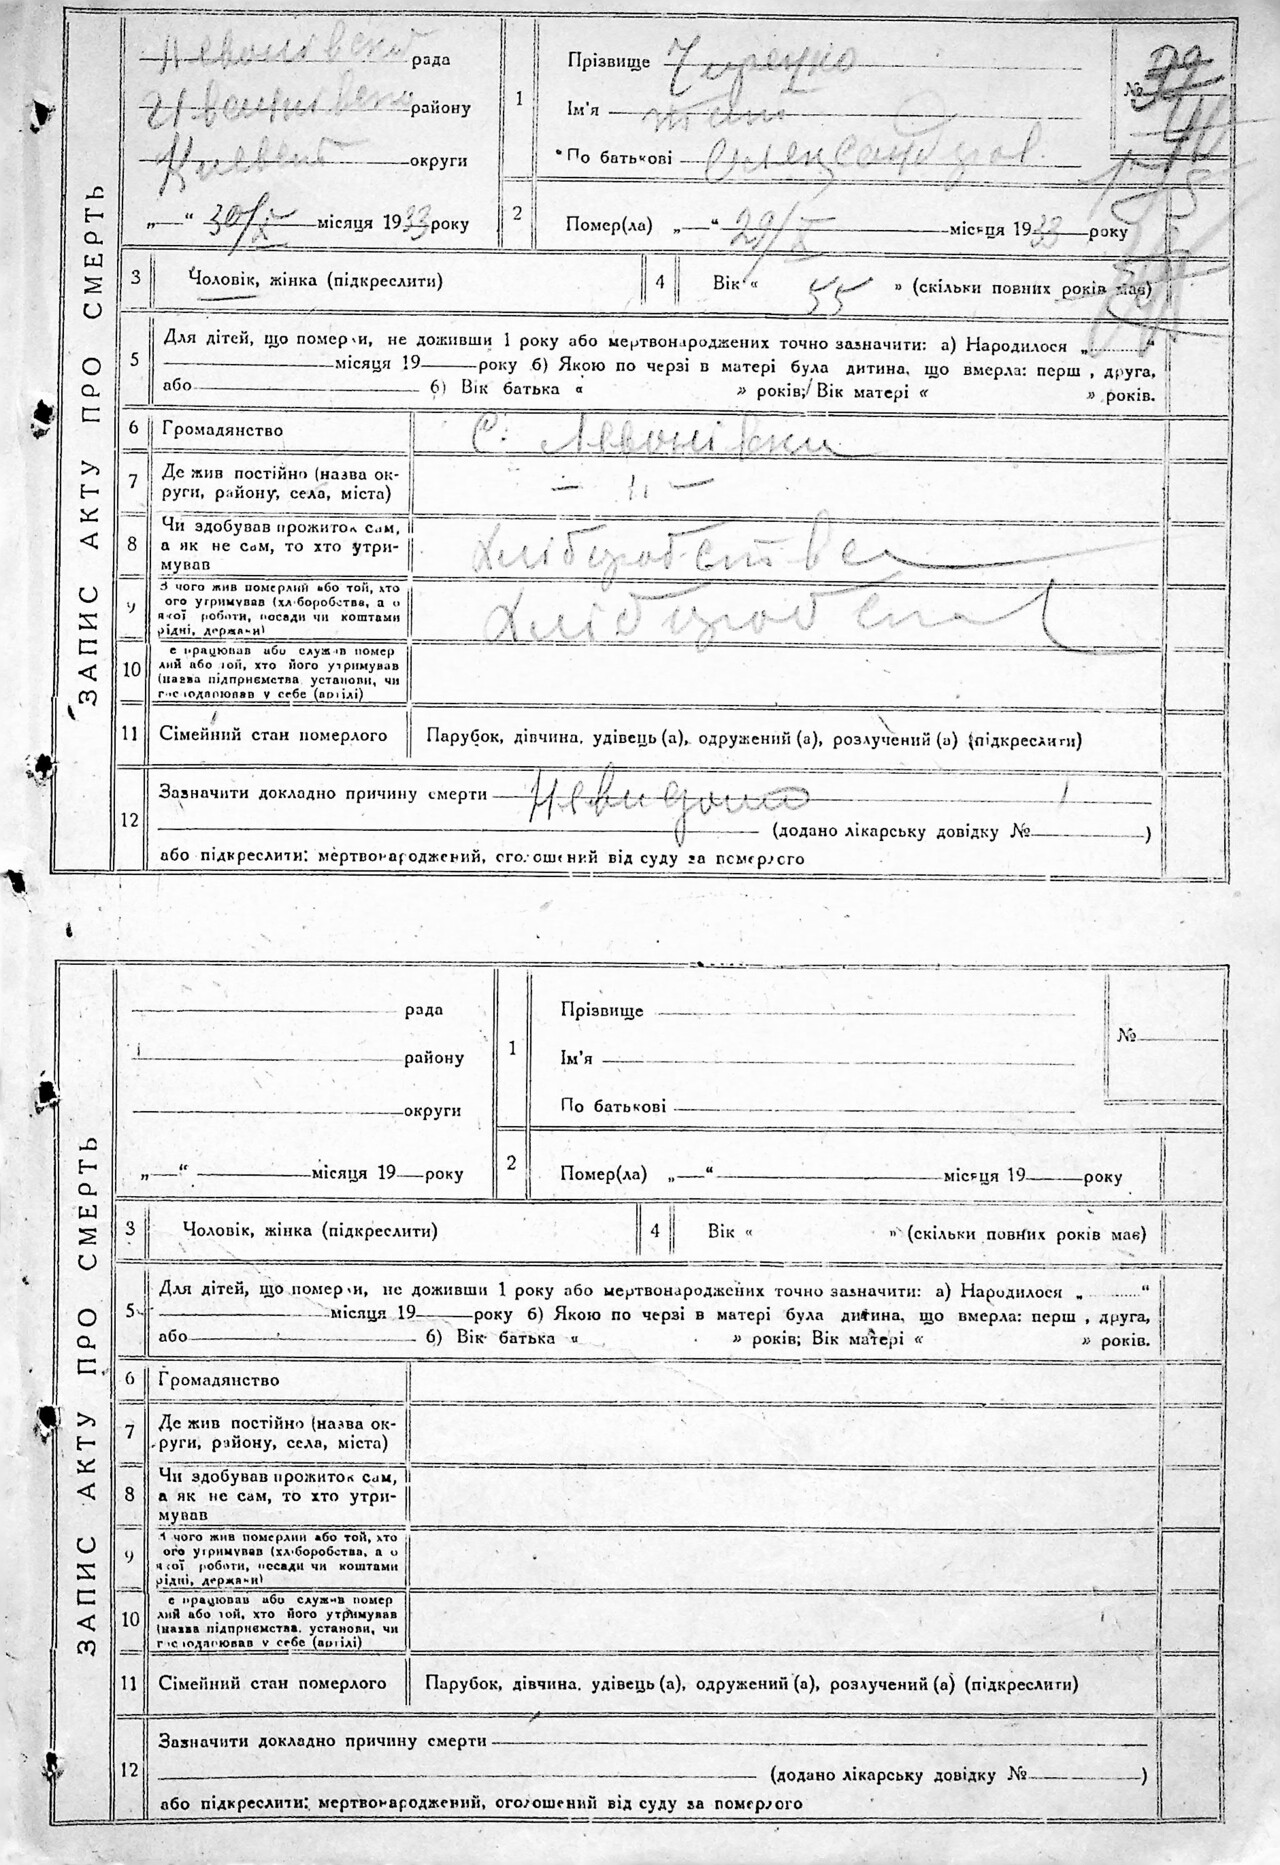 ЗАПИС АКТУ ПРО СМЕРТЬ
рада
району
округи
„ “ 30/X місяця 1933 року
1
Прізвище
Ім'я
По батькові
№
2
Помер(ла) „ “ 29/X місяця 1933 року
3
Чоловік, жінка (підкреслити)
4
Вік « 55 » (скільки повних років має)
5
Для дітей, що померли, не доживши 1 року або мертвонароджених точно зазначити: а) Народилося „ “
місяця 19 року б) Якою по черзі в матері була дитина, що вмерла: перш , друга,
або б) Вік батька « » років; Вік матері « » років.
6
Громадянство
с. Левонівки
7
Де жив постійно (назва ок-
руги, району, села, міста)
— „ —
8
Чи здобував прожиток сам,
а як не сам, то хто утри-
мував
9
З чого жив померлий або той, хто
ого утримував (хліборобства, а о
якої роботи, посади чи коштами
рідні, держави)
10
е працював або служив помер
лий або той, хто його утримував
(назва підприємства установи, чи
господарював у себе (артілі)
11
Сімейний стан померлого
Парубок, дівчина, удівець (а), одружений (а), розлучений (а) (підкреслити)
12
Зазначити докладно причину смерти Невидомо
(додано лікарську довідку № )
або підкреслити: мертвонароджений, оголошений від суду за померлого
ЗАПИС АКТУ ПРО СМЕРТЬ
рада
району
округи
„ “ місяця 19 року
1
Прізвище
Ім'я
По батькові
№
2
Помер(ла) „ “ місяця 19 року
3
Чоловік, жінка (підкреслити)
4
Вік « » (скільки повних років має)
5
Для дітей, що померли, не доживши 1 року або мертвонароджених точно зазначити: а) Народилося „ “
місяця 19 року б) Якою по черзі в матері була дитина, що вмерла: перш , друга,
або б) Вік батька « » років; Вік матері « » років.
6
Громадянство
7
Де жив постійно (назва ок-
руги, району, села, міста)
8
Чи здобував прожиток сам,
а як не сам, то хто утри-
мував
9
З чого жив померлий або той, хто
ого утримував (хліборобства, а о
якої роботи, посади чи коштами
рідні, держави)
10
е працював або служив помер
лий або той, хто його утримував
(назва підприємства установи, чи
господарював у себе (артілі)
11
Сімейний стан померлого
Парубок, дівчина, удівець (а), одружений (а), розлучений (а) (підкреслити)
12
Зазначити докладно причину смерти
(додано лікарську довідку № )
або підкреслити: мертвонароджений, оголошений від суду за померлого